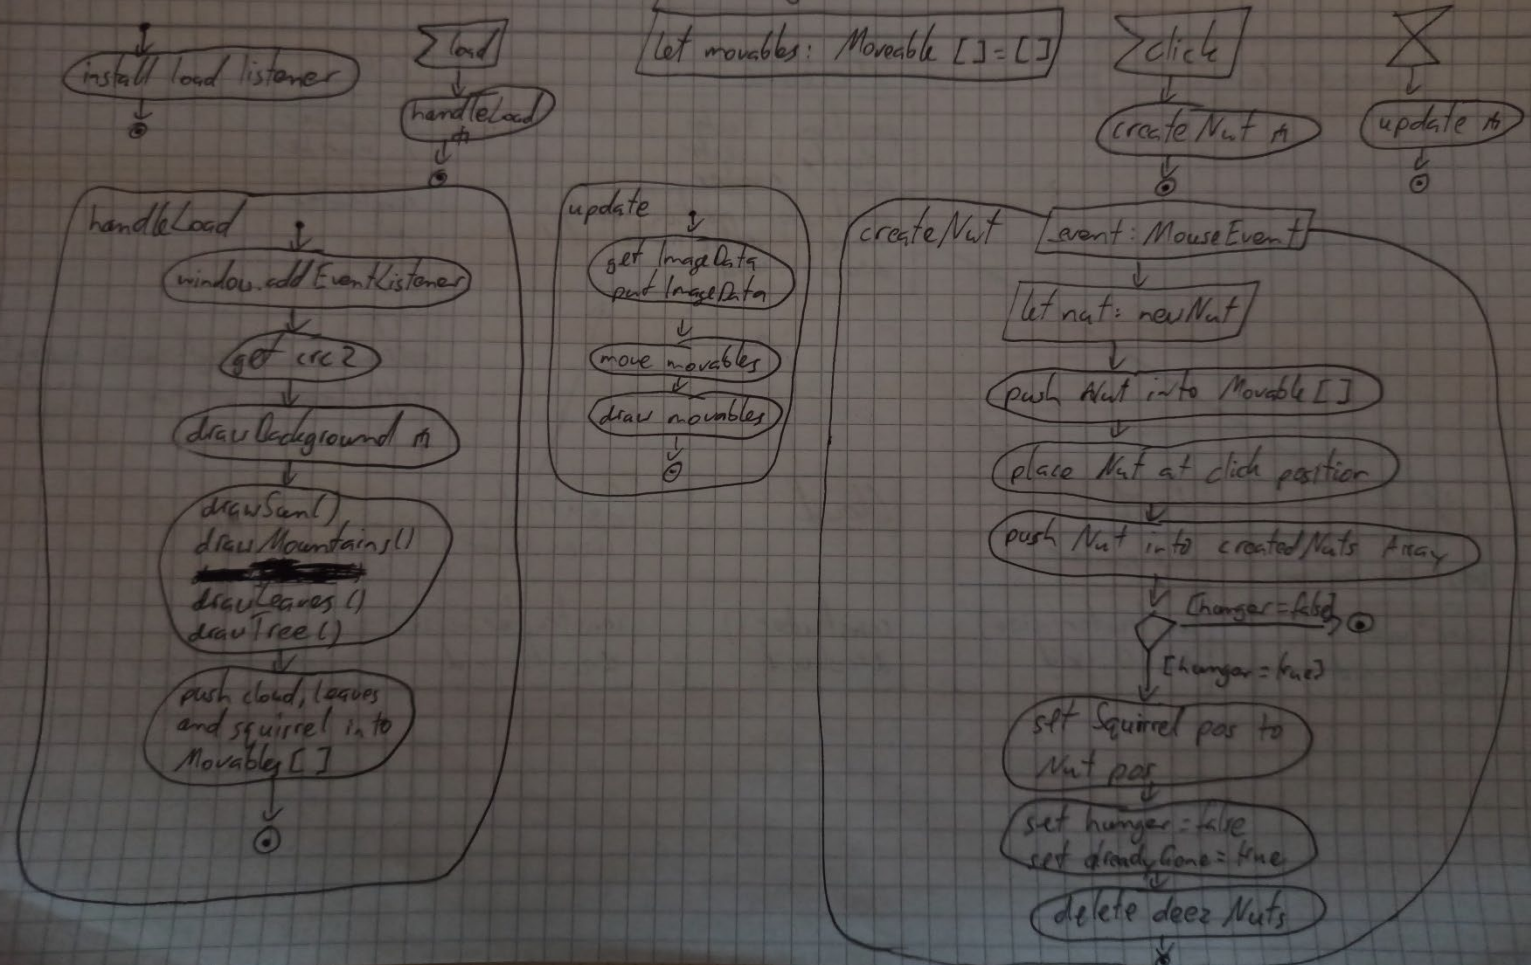 install load listener
load
handleLoad
let movables: Moveable [] = []
click
createNut
update
handleLoad
window.addEventListener
get crc2
drawBackground
drawSun()
drawMountains()
drawLeaves()
drawTree()
push cloud, leaves
and squirrel into
Movables[]
update
get ImageData
put ImageData
move movables
draw movables
createNut
_event: MouseEvent
let nut: newNut
push Nut into Movable[]
place Nut at click position
push Nut into createdNuts Array
[hunger = false]
[hunger = true]
set Squirrel pos to
Nut pos
set hunger = false
set alreadyGone = true
delete deez Nuts